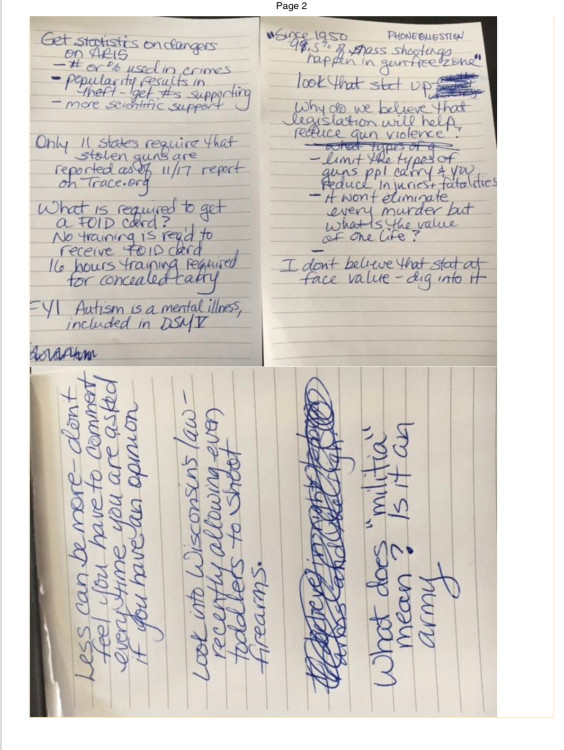 Page 2
Get statistics on dangers
on AR15
- # or % used in crimes
- popularity results in
theft - get #s supporting
- more scientific support
Only 11 states require that
stolen guns are
reported as of 11/17 report
on Trace.org
What is required to get
a FOID card?
No training is req'd to
receive FOID card
16 hours training required
for concealed carry
FYI Autism is a mental illness,
included in DSM V
"Since 1950 PHONE QUESTION
98.5% of mass shootings
happen in gun free zone"
look that stat up
Why do we believe that
legislation will help
reduce gun violence?
- limit the types of
guns ppl carry & you
reduce injuries + fatalities
- it won't eliminate
every murder but
what is the value
of one life?
-
I don't believe that stat at
face value - dig into it
Less can be more - don't
feel you have to comment
every time you are asked
if you have an opinion
Look into Wisconsin's law -
recently allowing even
toddlers to shoot
firearms.
What does "militia"
mean? Is it an
army